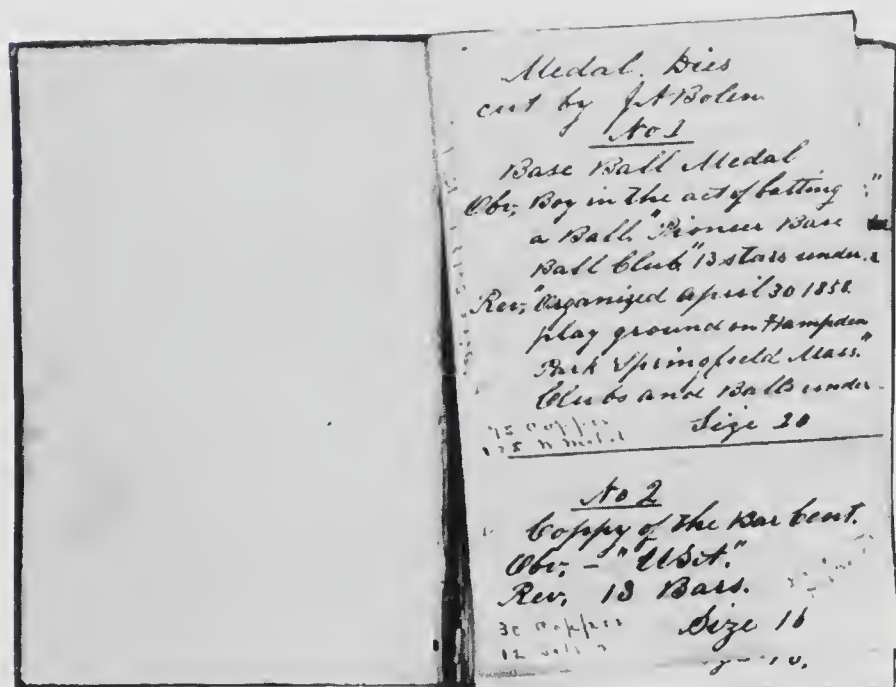 Medal. Dies
cut by J A Bolen
No 1
Base Ball Medal
Obv, Boy in the act of batting
a Ball, "Pioneer Base
Ball Club," 13 stars under.
Rev, "Organized April 30 1858.
play ground on Hampden
Park Springfield Mass."
Clubs and Balls under.
Copper
Size 20
No 2
Coppy of the Bar Cent.
Obv, - "USA."
Rev, 13 Bars.
Copper
Size 16